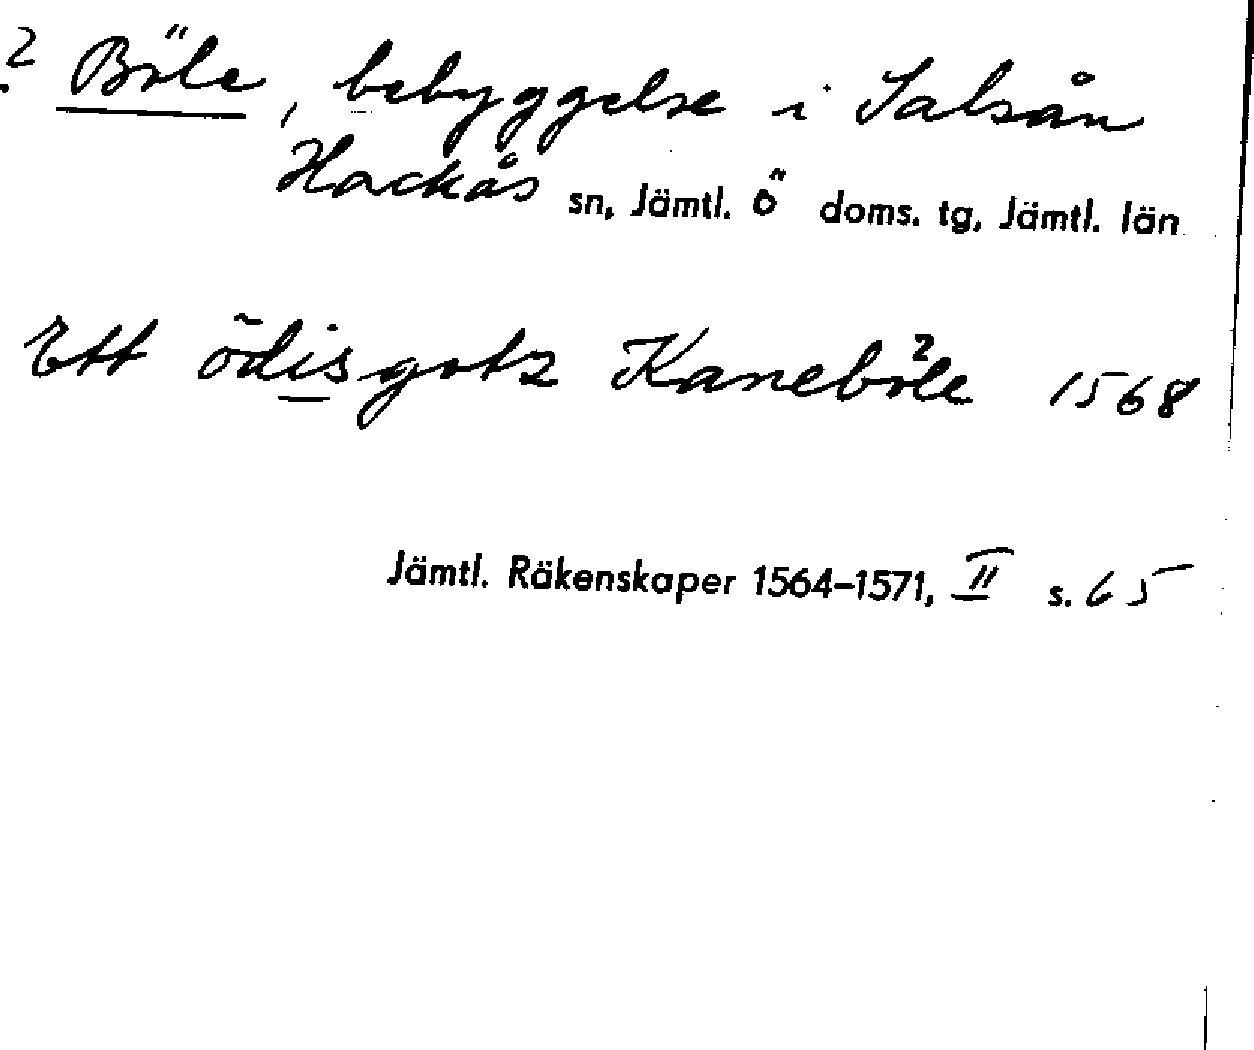 ? Böle, bebyggelse i Salsån
Hackås sn, Jämtl. ö doms. tg, Jämtl. län
Ett ödisgotz Kaneböle 1568
Jämtl. Räkenskaper 1564–1571, II s. 65